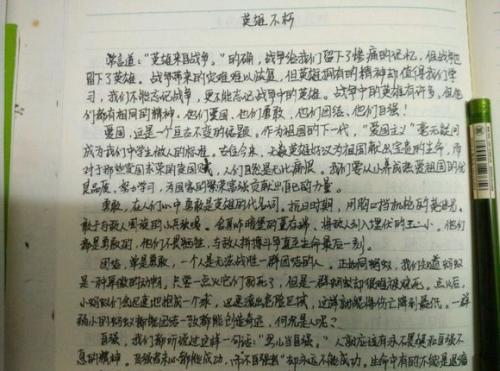 英雄不朽
常言道："英雄来自战争。"的确，战争给我们留下了惨痛的记忆，但战争也
留下了英雄。战争带来的灾难难以恢复，但英雄拥有的精神却值得我们学
习，我们不能忘记战争，更不能忘记战争中的英雄。战争中的英雄有许多，但他
们都有相同的精神，他们爱国，他们勇敢，他们团结，他们自强！
爱国，这是一个亘古不变的话题，作为祖国的下一代，"爱国主义"毫无疑问
成为我们中学生做人的标准。古往今来，无数英雄好汉为祖国献出宝贵的生命，而
对于那些卖国求荣的卖国贼，人们自然是无比痛恨。我们要从小养成热爱祖国的优
良品质，努力学习，为国家的繁荣富强贡献出自己的力量。
勇敢，在人们心中勇敢是英雄的代名词。抗日时期，用胸口挡机枪的黄继光，
敢于与敌人周旋的小兵张嘎。舍身炸暗堡的董存瑞，将敌人引入埋伏的王二小。他们
都是勇敢的，他们不畏牺牲，与敌人拼搏斗争直至生命最后一刻。
团结，单是勇敢，一个人是无法战胜一群团结的人。正如同蚂蚁，我们知道蚂蚁
是一种卑微的动物，只要一点火它们就死了，但是一群蚂蚁却很难被烧死。点火后，
小蚂蚁们会迅速地抱成一个球，迅速滚出危险区域，这样就能将伤亡降到最低。一群
弱小的蚂蚁都能团结一致都能创造奇迹，何况是人呢？
自强，我们都听说过这样一句话："男儿当自强。"人就应该有永不畏惧和自强不
息的精神。自强者未必都能成功，而不自强者却永远不能成功。生命中有的不能是退缩